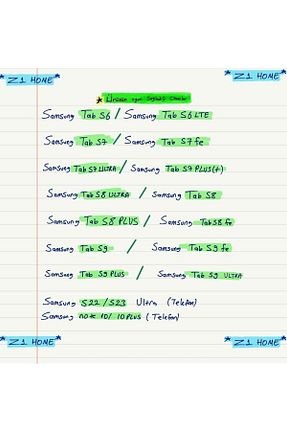 *Z1 HOME* *Z1 HOME*
* Ürünün uyum sağladığı cihazlar
Samsung Tab S6 / Samsung Tab S6 LTE
Samsung Tab S7 / Samsung Tab S7 fe
Samsung Tab S7 ULTRA / Samsung Tab S7 PLUS(+)
Samsung Tab S8 ULTRA / Samsung Tab S8
Samsung Tab S8 PLUS / Samsung Tab S8 fe
Samsung Tab S9 / Samsung Tab S9 fe
Samsung Tab S9 PLUS / Samsung Tab S9 ULTRA
Samsung S22 / S23 Ultra (Telefon)
Samsung note 10/ 10 PLUS (Telefon)
*Z1 HOME* *Z1 HOME*